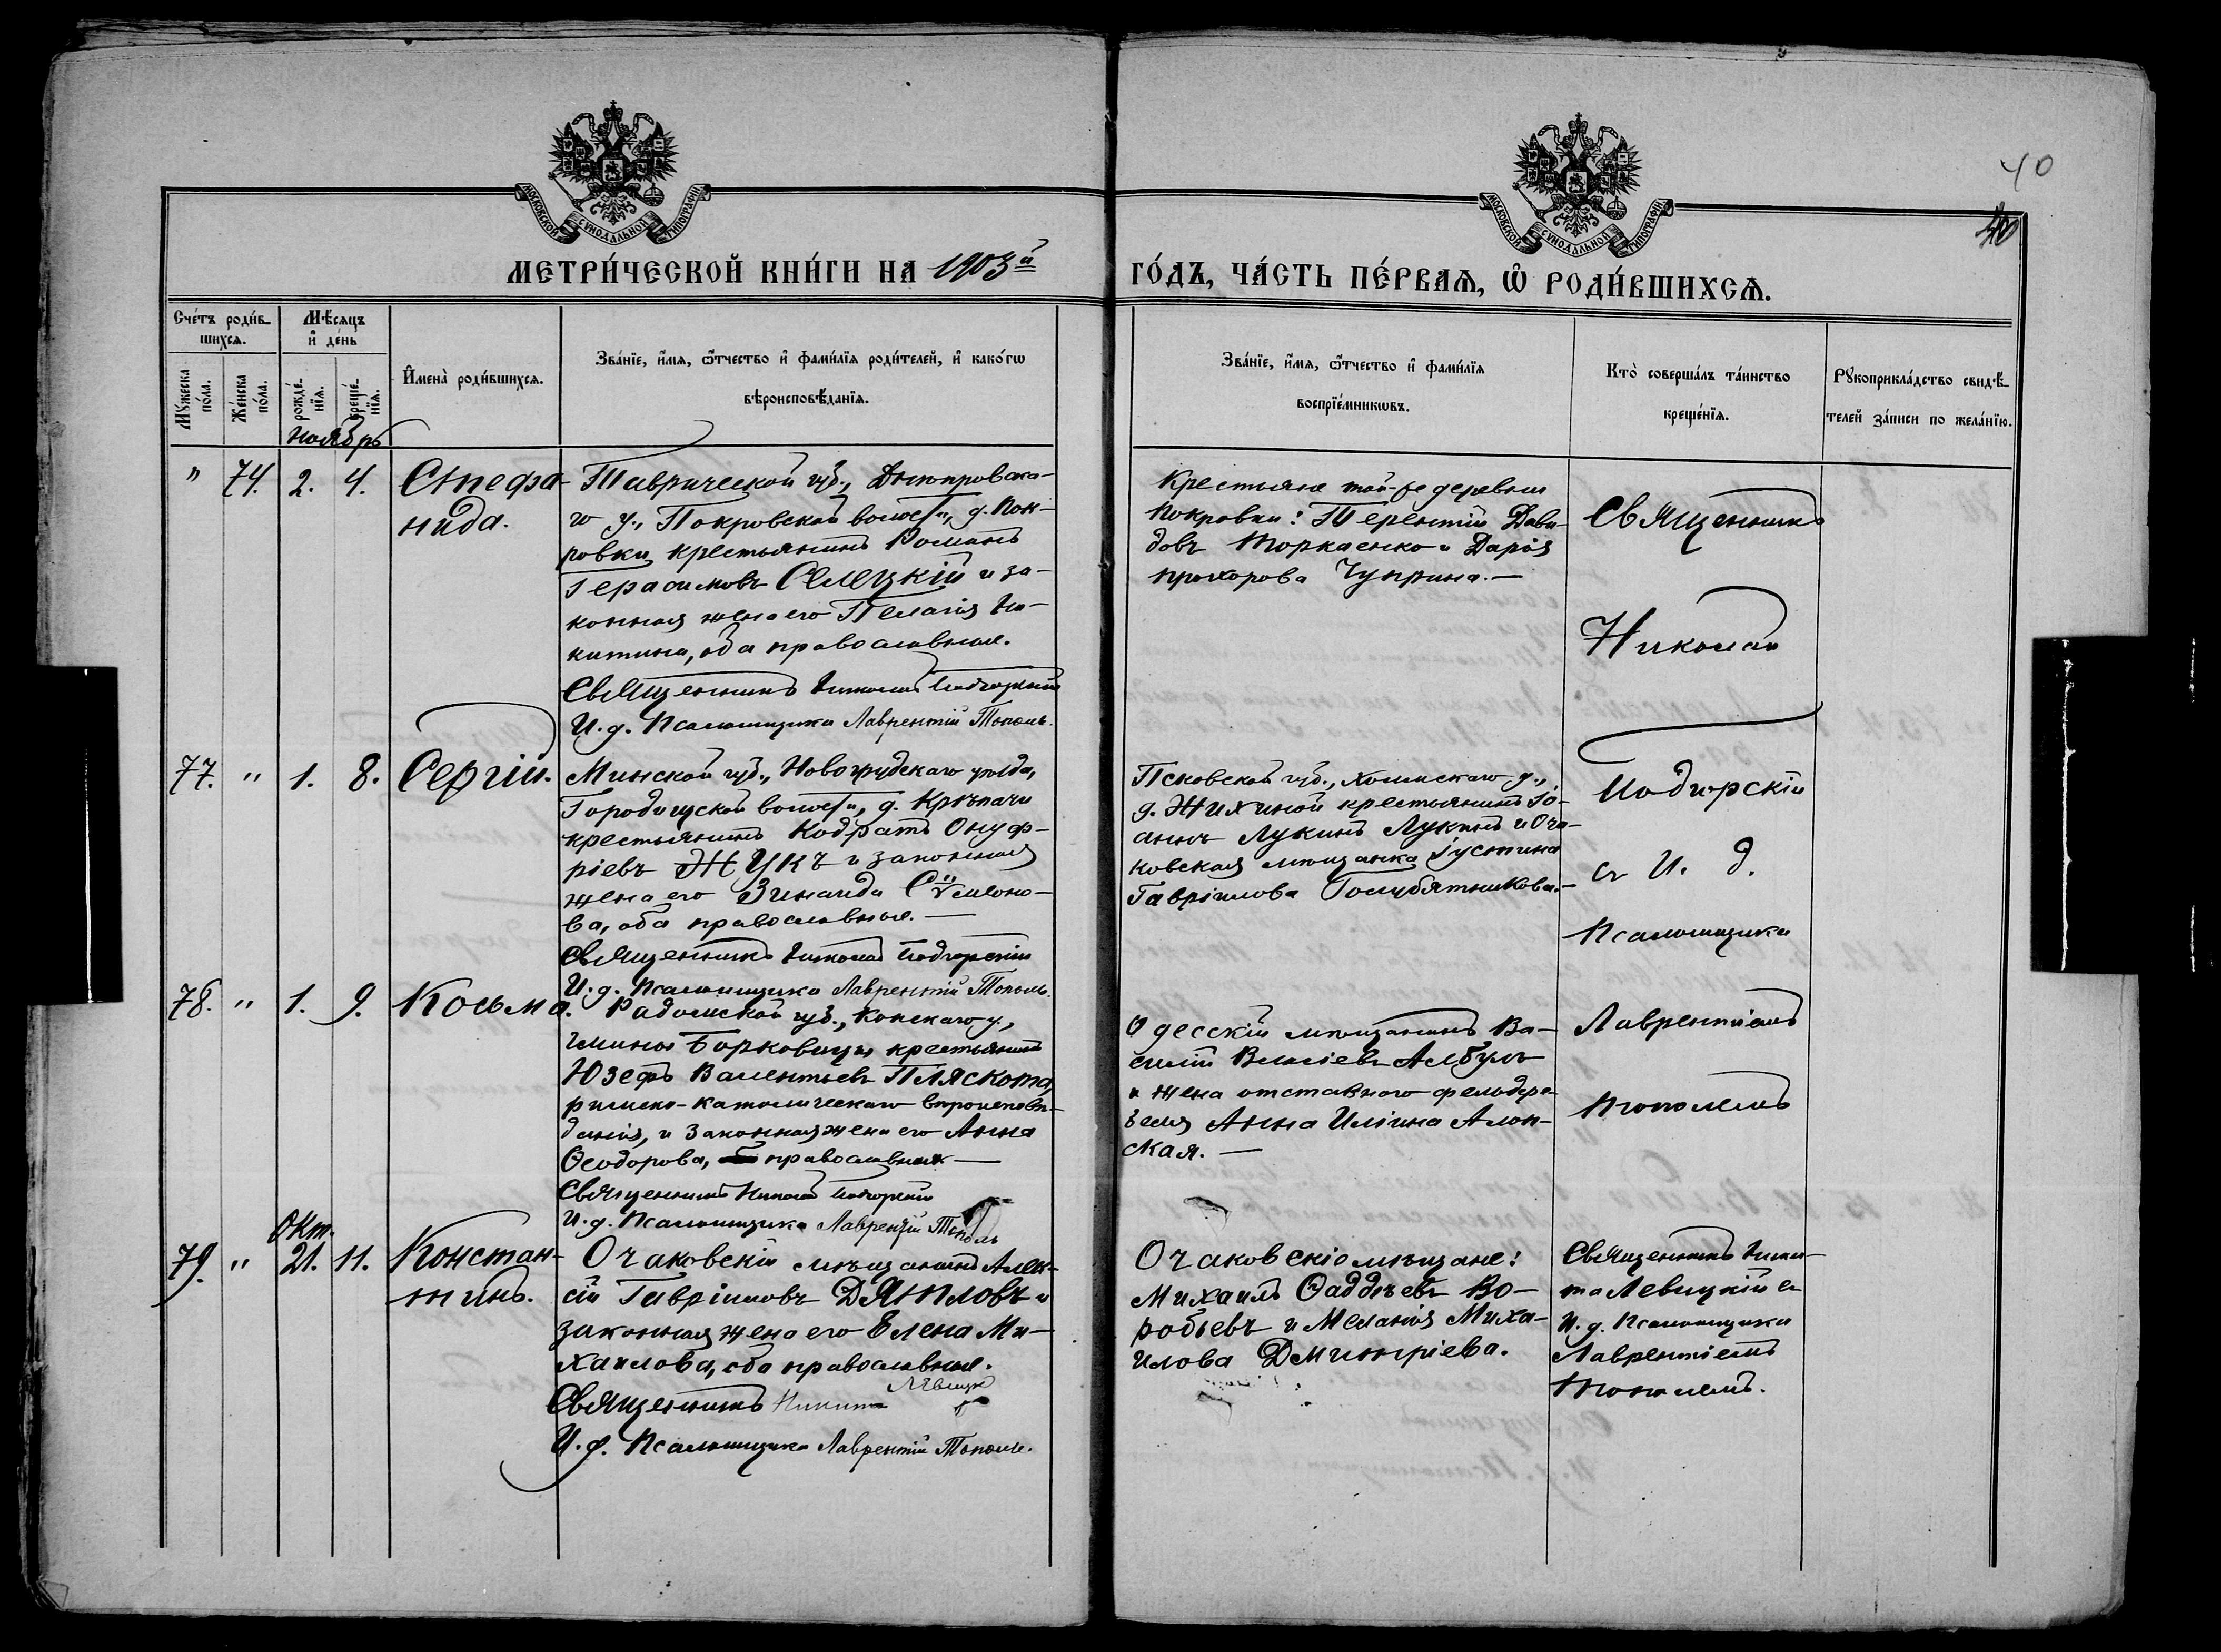 40
40
МОСКОВСКОЙ СѴНОДАЛЬНОЙ ТИПОГРАФІИ
МОСКОВСКОЙ СѴНОДАЛЬНОЙ ТИПОГРАФІИ
МЕТРИ́ЧЕСКОЙ КНИ́ГИ НА 1903й
ГО́ДЪ, ЧА́СТЬ ПЕ́РВАѦ, Ѽ РОДИ́ВШИХСѦ.
Сче́тъ роди́в-
шихсѧ.
Мꙋ́жеска по́ла.
Же́нска по́ла.
Мѣ́сѧцъ
и҆ де́нь
рожде́-
нїѧ.
креще́-
нїѧ.
И҆мена̀ роди́вшихсѧ.
Зва́нїе, и҆́мѧ, ѻ҆́тчество и҆ фами́лїѧ роди́телей, и҆ како́гѡ
вѣроисповѣ́данїѧ.
Зва́нїе, и҆́мѧ, ѻ҆́тчество и҆ фами́лїѧ
воспрїе́мникѡвъ.
Кто̀ соверша́лъ та́инство
креще́нїѧ.
Рꙋкоприкла́дство свидѣ́-
телей за́писи по жела́нїю.
Ноябрь
" 74. 2. 4. Стефа-
нида.
Таврической губ., Днѣпровска-
го у., Покровской волости, д. Пок-
ровки крестьянинъ Романъ
Герасимовъ Селецкій и за-
конная жена его Пелагія Ни-
китина, оба православные.
Священникъ Николай Подгорскій
И. д. Псаломщика Лаврентій Тополь.
Крестьяне той-же деревни
Покровки: Терентій Дави-
довъ Торкаенко и Дарія
Прохорова Чуприна.—
Священникъ
Николай
Подгорскій
съ И. д.
Псаломщика
Лаврентіемъ
Тополемъ
77. " 1. 8. Сергій.
Минской губ., Новогрудскаго уѣзда,
Городищской волости, д. Крѣпачи
крестьянинъ Кодратъ Онуф-
ріевъ ЖУКЪ и законная
жена его Зинаида Сѵмеоно-
ва, оба православные.—
Священникъ Николай Подгорскій
И. д. Псаломщика Лаврентій Тополь.
Псковской губ., Холмскаго у.,
д. Жихиной крестьянинъ Іо-
аннъ Лукинъ Лукинъ и Оча-
ковская мѣщанка Іустина
Гавріилова Голубятникова.—
78. " 1. 9. Косьма.
Радомской губ., Конскаго у.,
гмины Борковицы крестьянинъ
Юзефъ Валентьевъ Пляскота,
римско-католическаго вѣроисповѣ-
данія, и законная жена его Анна
Ѳеодорова, православная—
Священникъ Николай Подгорскій
И. д. Псаломщика Лаврентій Тополь
Одесскій мѣщанинъ Ва-
силій Власіевъ Албулъ
и жена отставного фельдфе-
беля Анна Иліина Алон-
ская.—
Окт.
79. " 21. 11. Констан-
тинъ.
Очаковскій мѣщанинъ Алек-
сій Гавріиловъ ДЯТЛОВЪ и
законная жена его Елена Ми-
хаилова, оба православные.
Священникъ Никита Левицкій
И. д. Псаломщика Лаврентій Тополь.
Очаковскіе мѣщане:
Михаилъ Ѳаддѣевъ Во-
робьевъ и Меланія Миха-
илова Дмитріева.
Священникъ Ники-
та Левицкій съ
И. д. Псаломщика
Лаврентіемъ
Тополемъ.